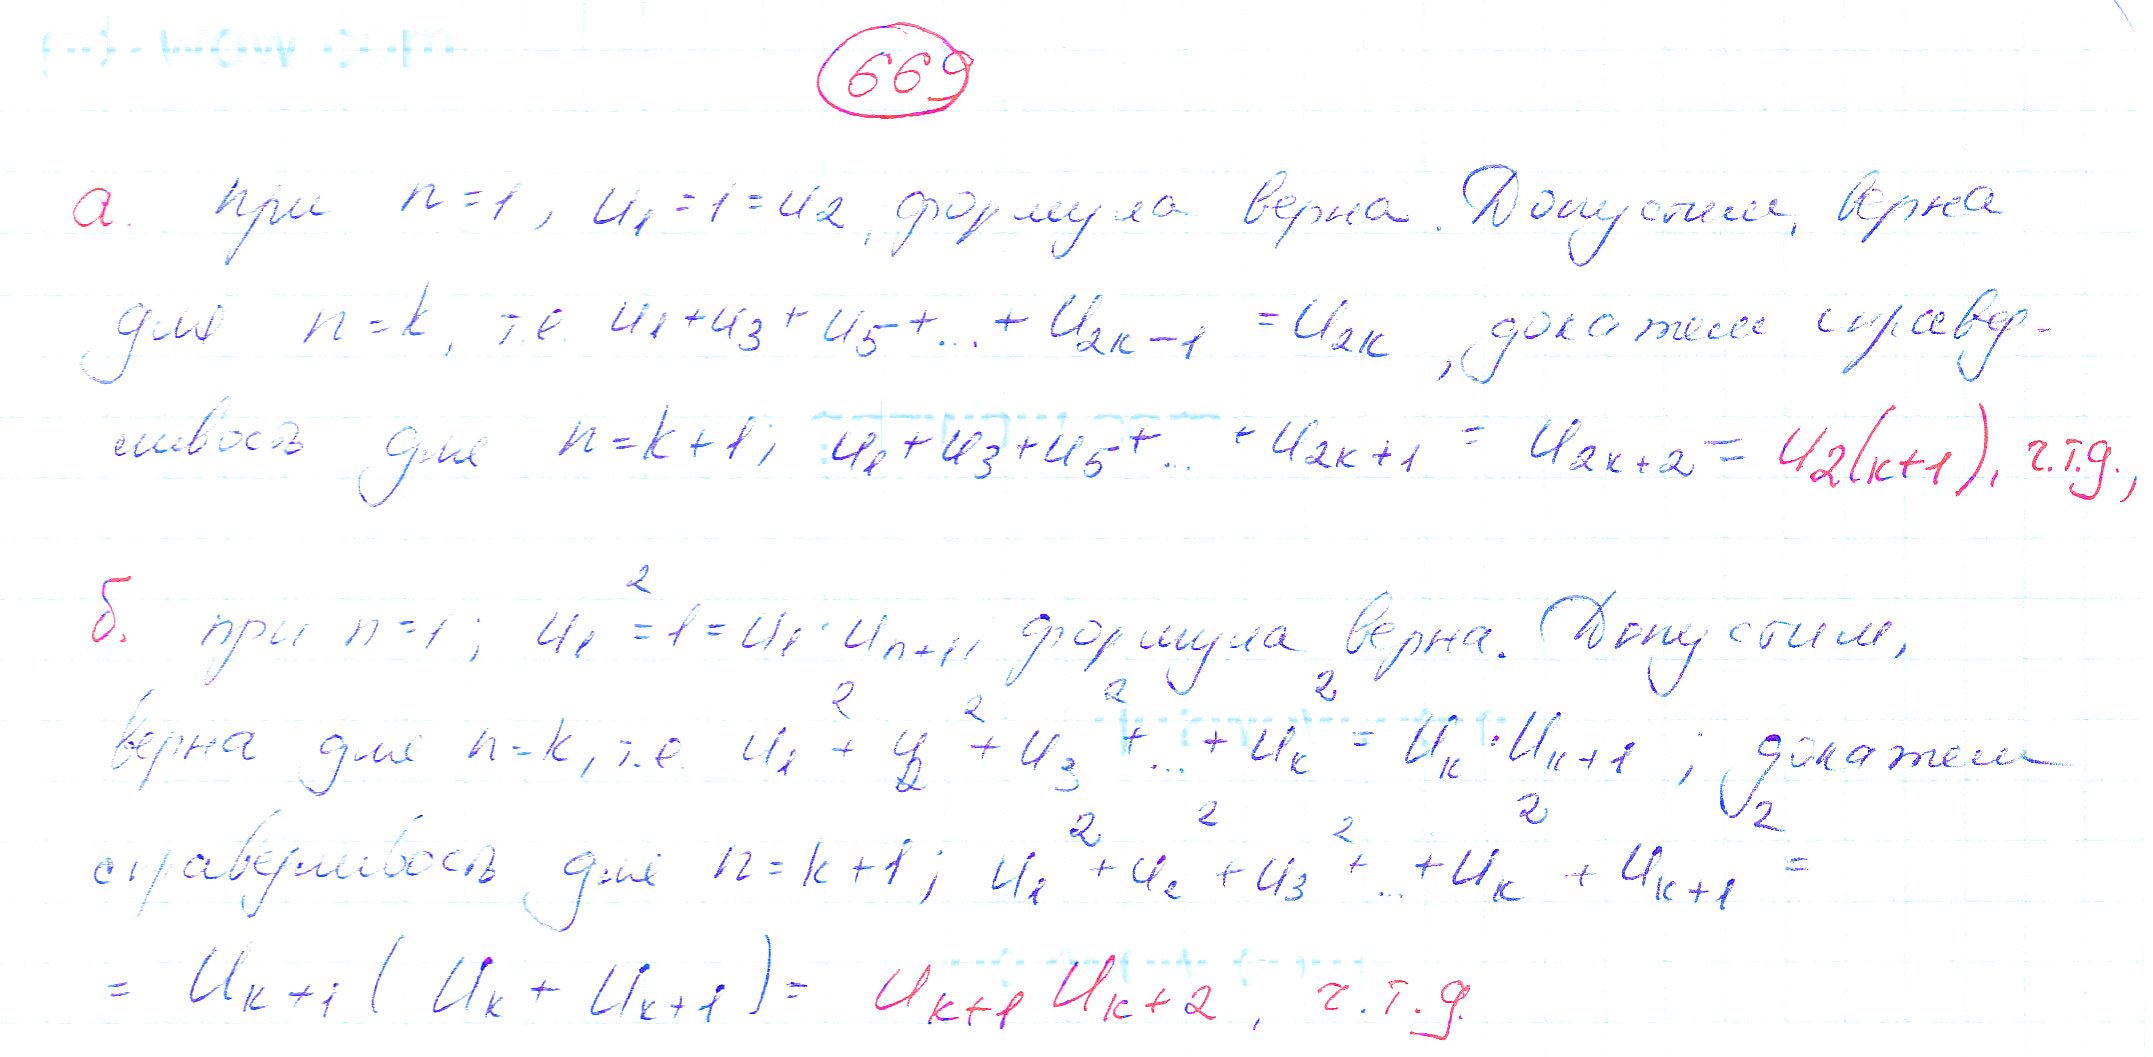 669
а. при n=1, u₁=1=u₂, формула верна. Допустим, верна
для n=k, т.е. u₁+u₃+u₅+...+u₂ₖ₋₁=u₂ₖ, докажем справед-
ливость для n=k+1; u₁+u₃+u₅+...+u₂ₖ₊₁=u₂ₖ₊₂=u₂₍ₖ₊₁₎, ч.т.д.,
б. при n=1; u₁²=1=u₁·uₙ₊₁; формула верна. Допустим,
верна для n=k, т.е. u₁²+u₂²+u₃²+...+uₖ²=uₖ·uₖ₊₁; докажем
справедливость для n=k+1; u₁²+u₂²+u₃²+...+uₖ²+uₖ₊₁²=
=uₖ₊₁(uₖ+uₖ₊₁)=uₖ₊₁uₖ₊₂, ч.т.д.